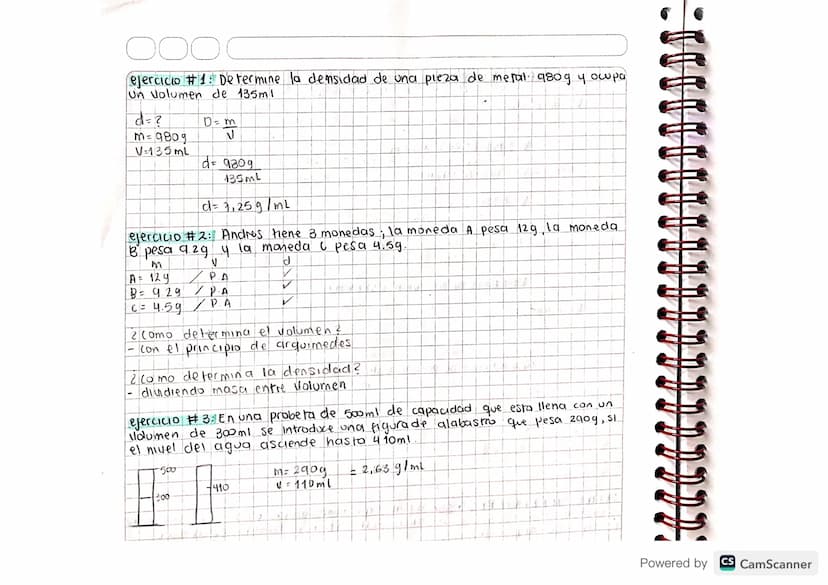 ejercicio #1: Determine la densidad de una pieza de metal. 980g y ocupa
un volumen de 135ml
d=? D= m
m=980g V
V=135mL
d= 980g
135mL
d= 7,25g/mL
ejercicio #2: Andres tiene 3 monedas; la moneda A pesa 12g, la moneda
B pesa 92g y la moneda C pesa 4.5g.
m V d
A= 12g / P A ✓
B= 92g / P.A ✓
C= 4.5g / P A ✓
¿como determina el volumen?
- con el principio de arquimedes
¿como determina la densidad?
- dividiendo masa entre volumen
ejercicio #3: En una probeta de 500ml de capacidad que esta llena con un
volumen de 300ml se introduce una figura de alabastro que pesa 290g, si
el nivel del agua asciende hasta 410ml
500 m= 290g = 2,63 g/ml
300 410 V= 110ml
Powered by CS CamScanner